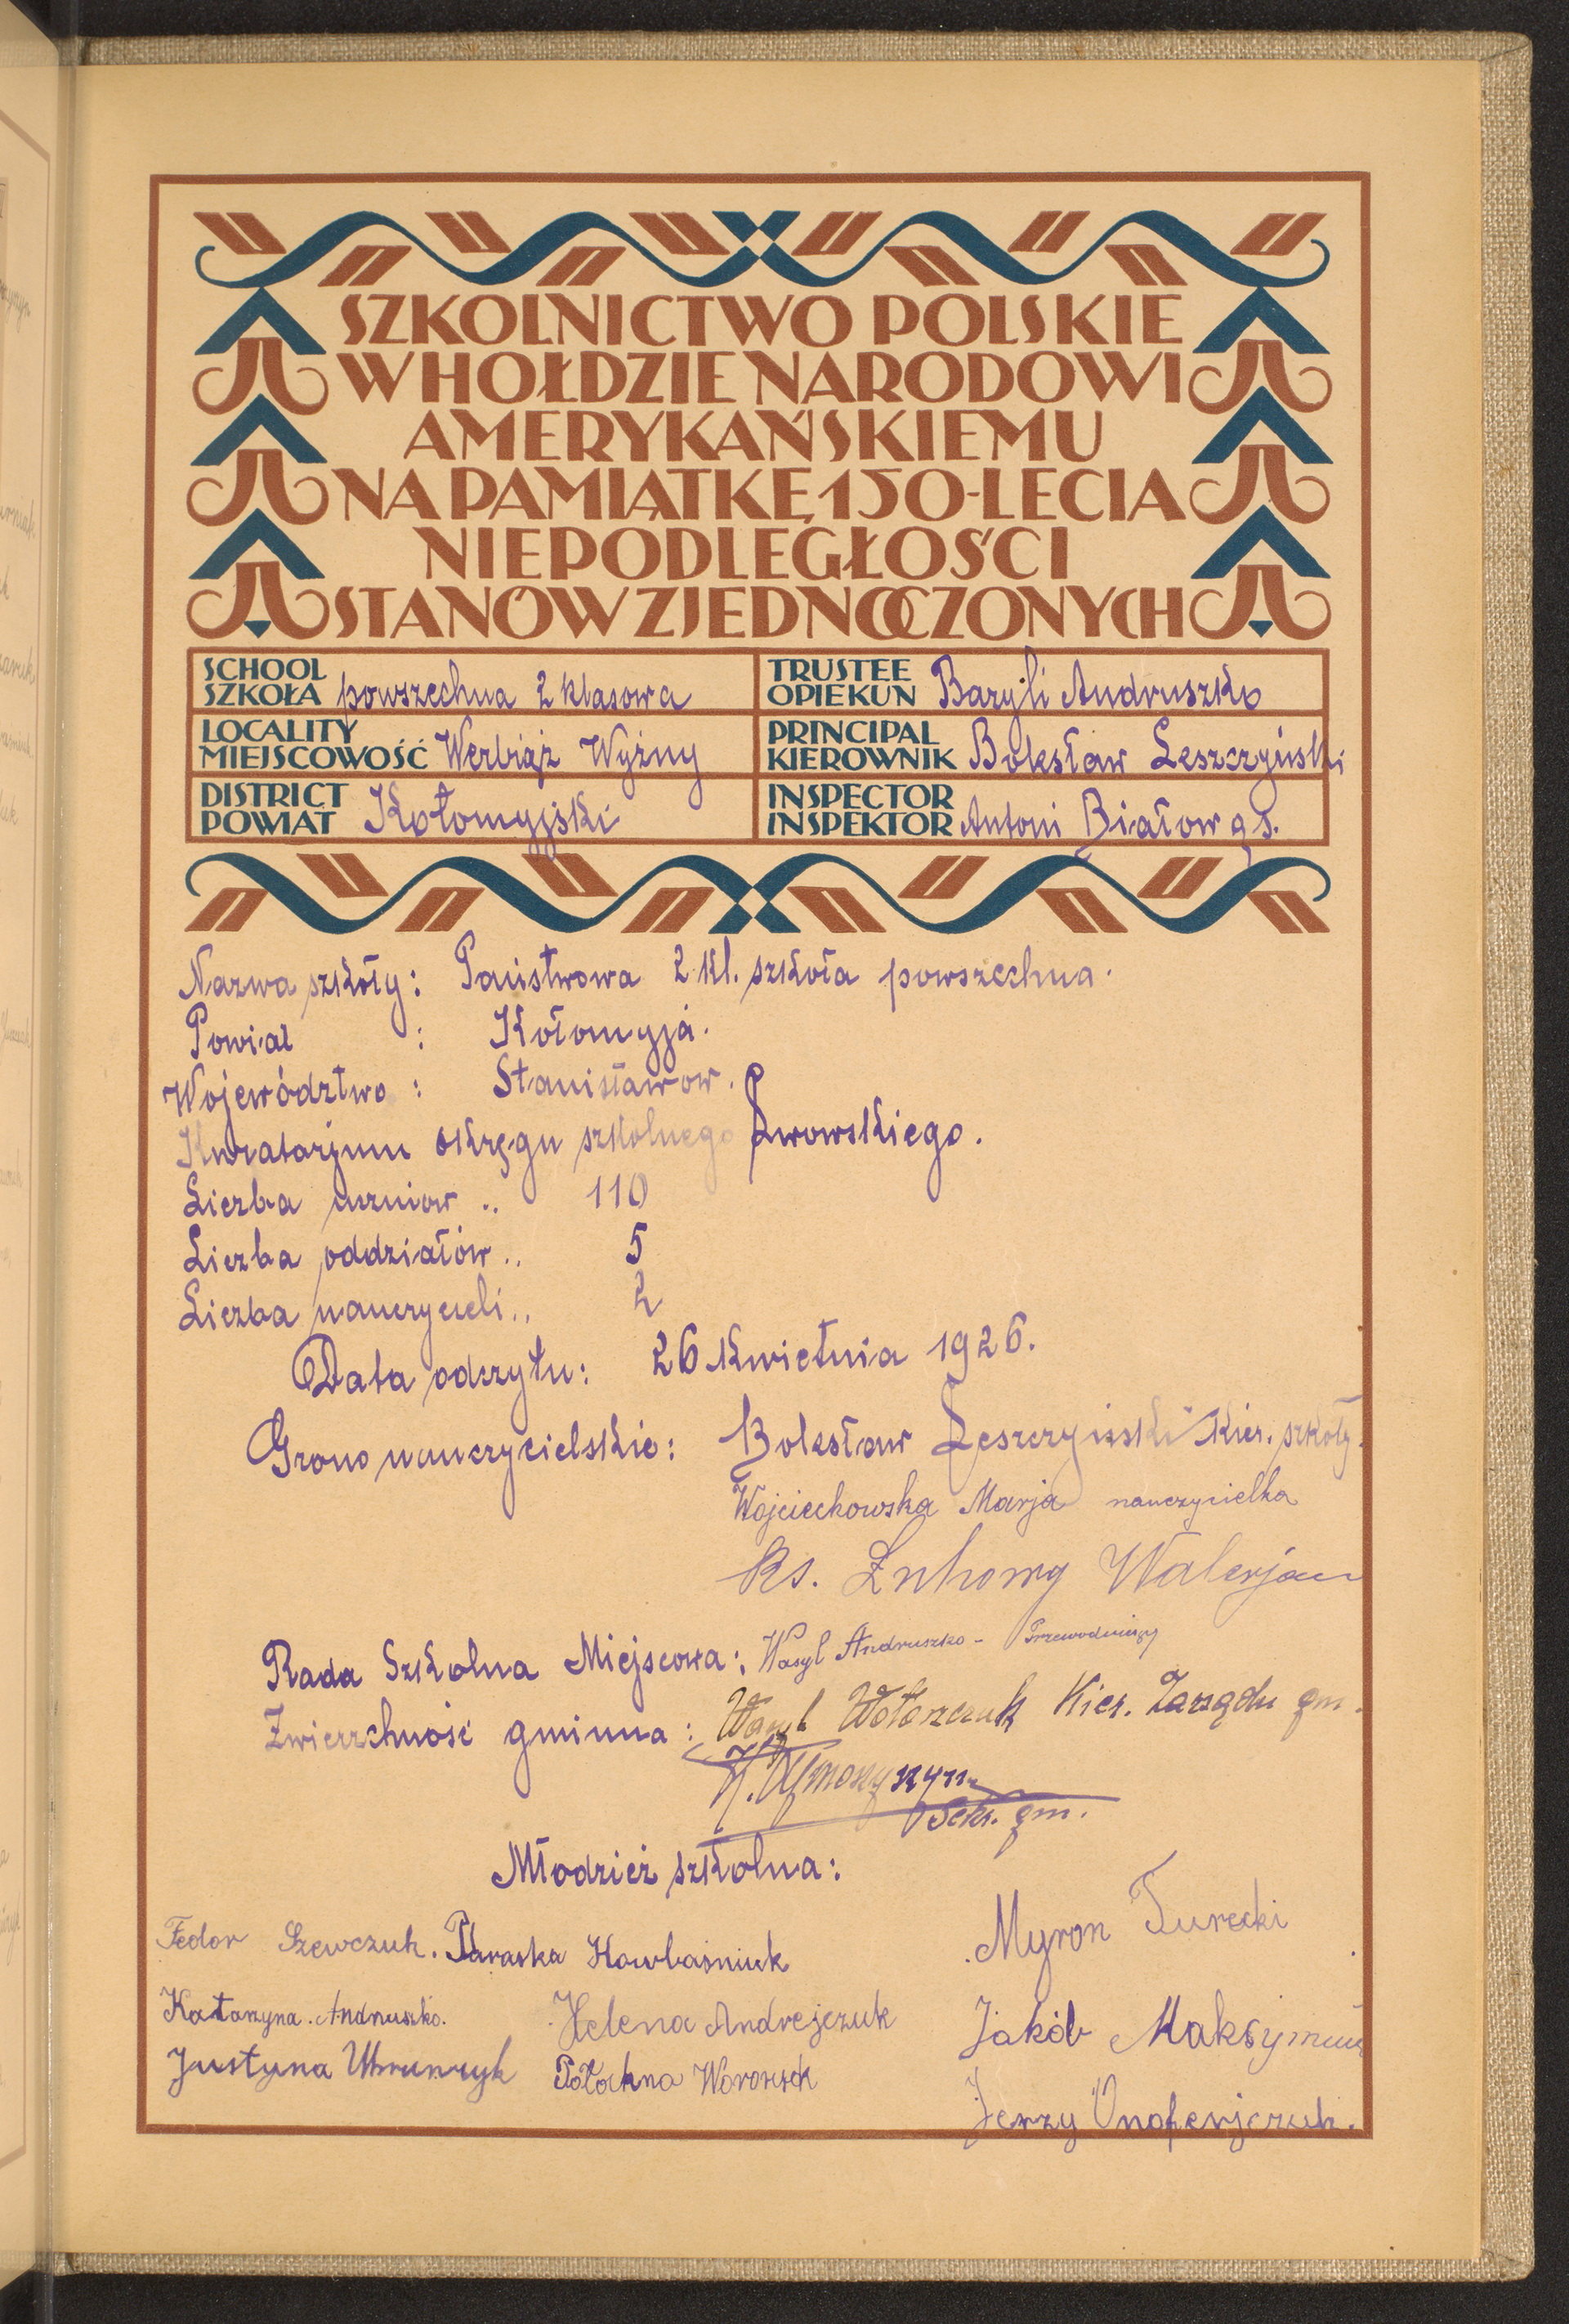 SZKOLNICTWO POLSKIE
W HOŁDZIE NARODOWI
AMERYKAŃSKIEMU
NA PAMIĄTKĘ 150-LECIA
NIEPODLEGŁOŚCI
STANÓW ZJEDNOCZONYCH
SCHOOL
SZKOŁA powszechna 2 klasowa
TRUSTEE
OPIEKUN Bazyli Andruszko
LOCALITY
MIEJSCOWOŚĆ Werbiąż Wyżny
PRINCIPAL
KIEROWNIK Bolesław Leszczyński
DISTRICT
POWIAT Kołomyjski
INSPECTOR
INSPEKTOR Antoni Białowąs.
Nazwa szkoły: Państwowa 2 kl. szkoła powszechna.
Powiat : Kołomyja.
Województwo : Stanisławow.
Kuratorjum okręgu szkolnego Lwowskiego.
Liczba uczniow .. 110
Liczba oddziałów .. 5
Liczba nauczycieli .. 2
Data odczytu: 26 kwietnia 1926.
Grono nauczycielskie: Bolesław Leszczyński kier. szkoły.
Wojciechowska Marja nauczycielka
Ks. Walerjan
Rada Szkolna Miejscowa: Wasyl Andruszko - Przewodniczący
Zwierzchność gminna: Wasyl Wołoszczuk Kier. Zarządu gm.
Sekr. gm.
Młodzież szkolna:
Fedor Szewczuk. Paraska Kowbaśniuk Myron Turecki
Katarzyna. Andruszko. Helena Andrejczuk Jakób
Justyna Połachna Jerzy Onoferjczuk.